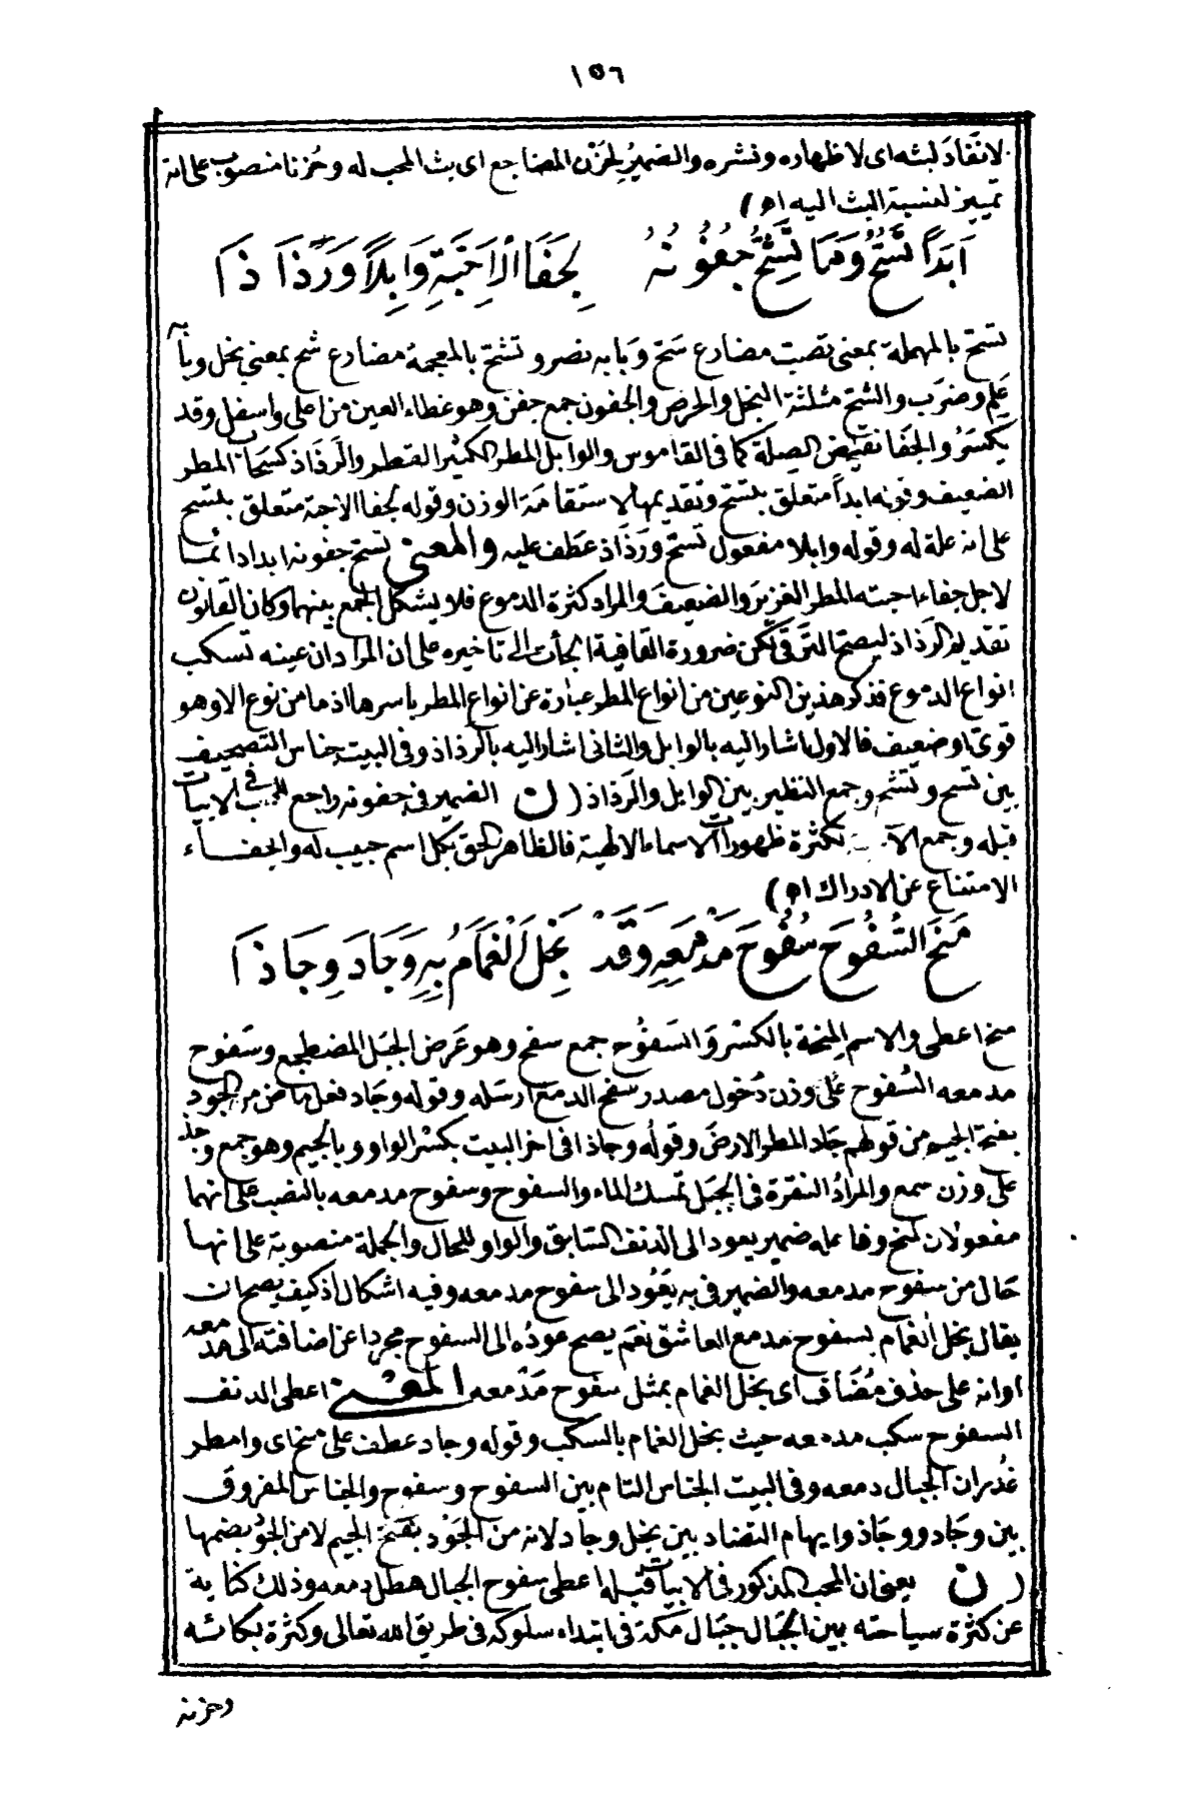 ١٥٦
لا نفاد لبثه اى لا ظهاره ونشره والضمير لحزن المضاجع اى بث المحب له وحزنا منصوب على انه
تمييز لنسبة البث اليه اه )
اَبَدًا تَسُحُّ وَمَا تَشِحُّ جُفُونُهُ لِجَفَا الأَحِبَّةِ وَابِلاً وَرَذَاذَا
تسح بالمهملة بمعنى تصب مضارع سَحّ وبابه نصر وتشح بالمعجمة مضارع شح بمعنى بخل وبابه
علم وضرب والشح مثلثة البخل والحرص والجفون جمع جفن وهو غطاء العين من اعلى واسفل وقد
يكسر والجفا نقيض الصلة كما فى القاموس والوابل المطر الكثير القطر والرذاذ كسحاب المطر
الضعيف وقوله ابدا متعلق بتسح وتقديمها لاستقامة الوزن وقوله لجفا الاحبة متعلق بتسح
على انه علة له وقوله وابلا مفعول تسح ورذاذ عطف عليه والمعنى تسح جفونه ابدا دائما
لاجل جفاء احبته المطر الغزير والضعيف والمراد كثرة الدموع فلا يشكل الجمع بينهما وكان القانون
تقديم الرذاذ ليصح الترقى لكن ضرورة القافية الجأت الى تاخيره على ان المراد ان عينه تسكب
انواع الدموع فذكر هذين النوعين من انواع المطر عبارة عن انواع المطر باسرها اذ ما من نوع الا وهو
قوى او ضعيف فالاول اشار اليه بالوابل والثانى اشار اليه بالرذاذ وفى البيت جناس التصحيف
بين تسح وتشح وجمع النظير بين الوابل والرذاذ ( ن الضمير فى جفونه راجع للمحب فى الابيات
قبله وجمع لكثرة ظهورات الاسماء الالهية فالظاهر الحق بكل اسم حبيب له والجفاء
الامتناع عن الادراك اه )
مَنَحَ السُّفُوحَ سُفُوحَ مَدْمَعِهِ وَقَدْ بَخِلَ الْغَمَامُ بِهِ وَجَادَ وِجَاذَا
منح اعطى والاسم المنحة بالكسر والسفوح جمع سفح وهو عرض الجبل المضطجع وسفوح
مدمعه السفوح على وزن دخول مصدر سفح الدمع ارسله وقوله وجاد فعل ماض من الجود
بفتح الجيم من قولهم جاد المطر الارض وقوله وجاذا فى اخر البيت بكسر الواو وبالجيم وهو جمع وجذ
على وزن سمع والمراد النقرة فى الجبل تمسك الماء والسفوح وسفوح مدمعه بالنصب على انهما
مفعولان لمنح وفاعله ضمير يعود الى الدنف السابق والواو للحال والجملة منصوبة على انها
حال من سفوح مدمعه والضمير فى به يعود الى سفوح مدمعه وفيه اشكال اذ كيف يصح ان
يقال بخل الغمام بسفوح مدمع العاشق نعم يصح عوده الى السفوح مجردا عن اضافته الى مدمعه
اوانه على حذف مضاف اى بخل الغمام بمثل سفوح مدمعه المعنى اعطى الدنف
السفوح سكب مدمعه حيث بخل الغمام بالسكب وقوله وجاد عطف على منح اى وامطر
غدران الجبال دمعه وفى البيت الجناس التام بين السفوح وسفوح والجناس المفروق
بين وجاد ووجاذ وايهام التضاد بين بخل وجاد لانه من الجود بفتح الجيم لا من الجود بضمها
( ن يعنى ان المحب المذكور فى الابيات قبله اعطى سفوح الجبال هطل دمعه وذلك كناية
عن كثرة سياحته بين الجبال جبال مكة فى ابتداء سلوكه فى طريق الله تعالى وكثرة بكائه
وحزنه